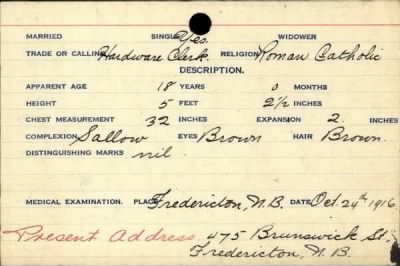 MARRIED SINGLE Yes. WIDOWER
TRADE OR CALLING Hardware Clerk. RELIGION Roman Catholic
DESCRIPTION.
APPARENT AGE 18 YEARS 0 MONTHS
HEIGHT 5 FEET 2½ INCHES
CHEST MEASUREMENT 32 INCHES EXPANSION 2. INCHES
COMPLEXION Sallow EYES Brown HAIR Brown.
DISTINGUISHING MARKS nil.
MEDICAL EXAMINATION. PLACE Fredericton, N.B. DATE Oct. 24th 1916.
Present Address, 475 Brunswick St.,
Fredericton, N.B.